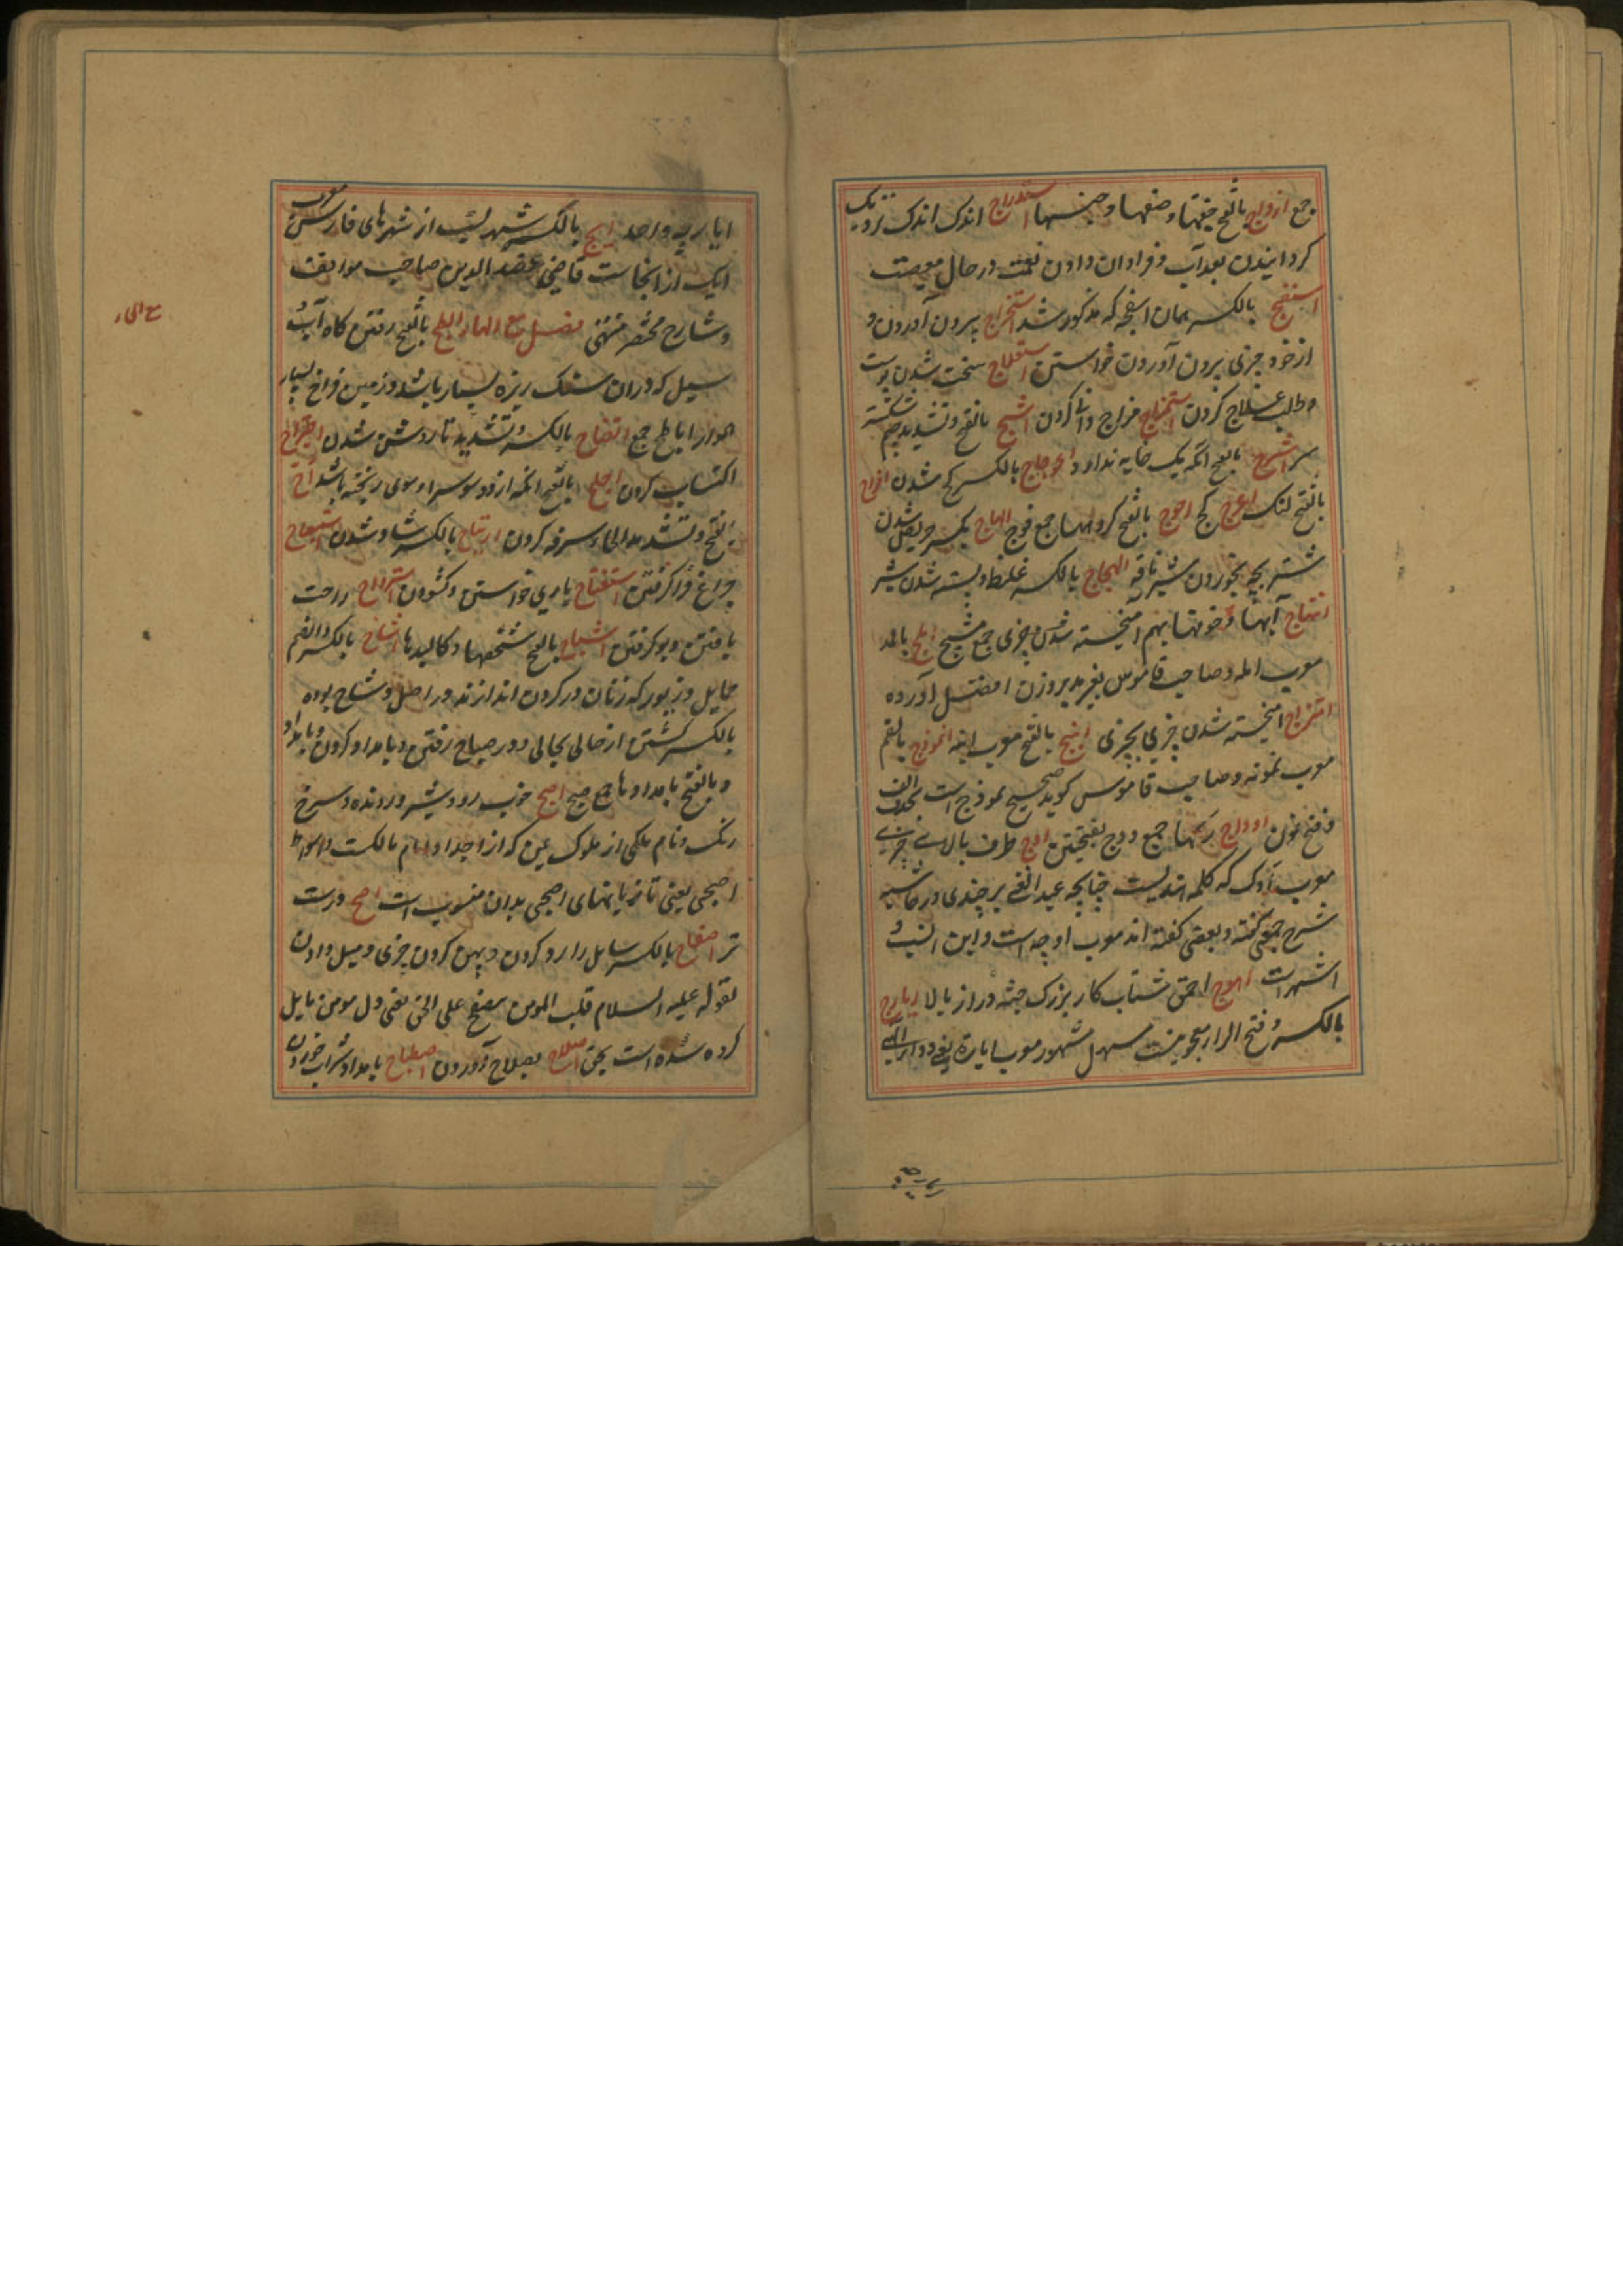 جمع ازواج بالفتح جفتها و صنفها و جنسها استدراج اندک اندک نزدیک
کردانیدن بعذاب و فراوان دادن نعمت در حال معصیت
اسفنج بالکسر همان اسفنجه که مذکور شد استخراج بیرون آوردن و
از خود چیزی برون آوردن خواستن استعلاج سخت شدن پوست
و طلب علاج کردن استمزاج مزاج دانی کردن اشج بالفتح و تشدید جیم شکسته
سر اشرج بالفتح آنکه یک خایه ندارد اعوجاج بالکسر کج شدن
بالفتح لنک اعرج کج اعوج بالفتح کروهها جمع فوج الهاج بکسر حریص شدن
شتر بچه بخوردن شیر ناقه الهجاج بالکسر غلیظ و بسته شدن شیر
آبها و خونها بهم آمیخته شدن چیزی جمع مشیج بالمد
معرب و صاحب قاموس بغیر مد بروزن افضل آورده
امتزاج آمیخته شدن چیزی بچیزی انبج بالفتح معرب انبه انموذج بالضم
معرب نمونه و صاحب قاموس کوید صحیح نموذج است بحذف الف
و فتح نون اوداج رکها جمع ودج بفتحتین اوج طرف بالای چیزی
معرب اوک که کلمه هندیست چنانچه عبد العلی برجندی در حاشیه
شرح چغمنی کفته و بعضی کفته اند معرب اوچه است و این انسب و
اشهر است اهوج احمق شتاب کار بزرک جثه دراز بالا ایارج
بالکسر و فتح الرا معجونیست مسهل مشهور معرب ایاره یعنی دوای الهی
ایارج واحد ایج بالکسر شهریست از شهرهای فارس معرب
ایک از انجاست قاضی عضد الدین صاحب مواقف
و شارح مختصر منتهی فصل مع الحاء ابطح بالفتح رفتن کاه آب و
سیل که در ان سنک ریزه بسیار باشد و زمین فراخ بسیار
هموار اباطح جمع اتضاح بالکسر و تشدید تا روشن شدن اجتراح
اکتساب کردن اجلح بالفتح آنکه از دو سو سر او موی ریخته باشد اح
بالفتح و تشدید الحا سرفه کردن ارتیاح بالکسر شاد شدن استصباح
چراغ فرا کرفتن استفتاح یاری خواستن و کشودن استرواح راحت
یافتن و بو کرفتن اشباح بالفتح شخصها و کالبدها اشاح بالکسر و الضم
حمایل و زیور که زنان در کردن اندازند در اصل وشاح بوده
بالکسر کشتن از حالی بحالی و در صباح رفتن و بامداد کردن و بامداد
و بالفتح بامدادها جمع صبح اصبح خوب رو و شیر درنده و سرخ
رنک و نام ملکی از ملوک یمن که از اجداد امام مالکست و اسواط
اصبحی یعنی تازیانهای اصبحی بدان منسوب است اصح درست
تر اصفاح بالکسر سایل را رد کردن و پهن کردن چیزی و میل دادن
لقوله علیه السلام قلب المومن مصفح علی الحق یعنی دل مومن مایل
کرده شده است بحق اصلاح بصلاح آوردن اصطباح بامداد شراب خوردن